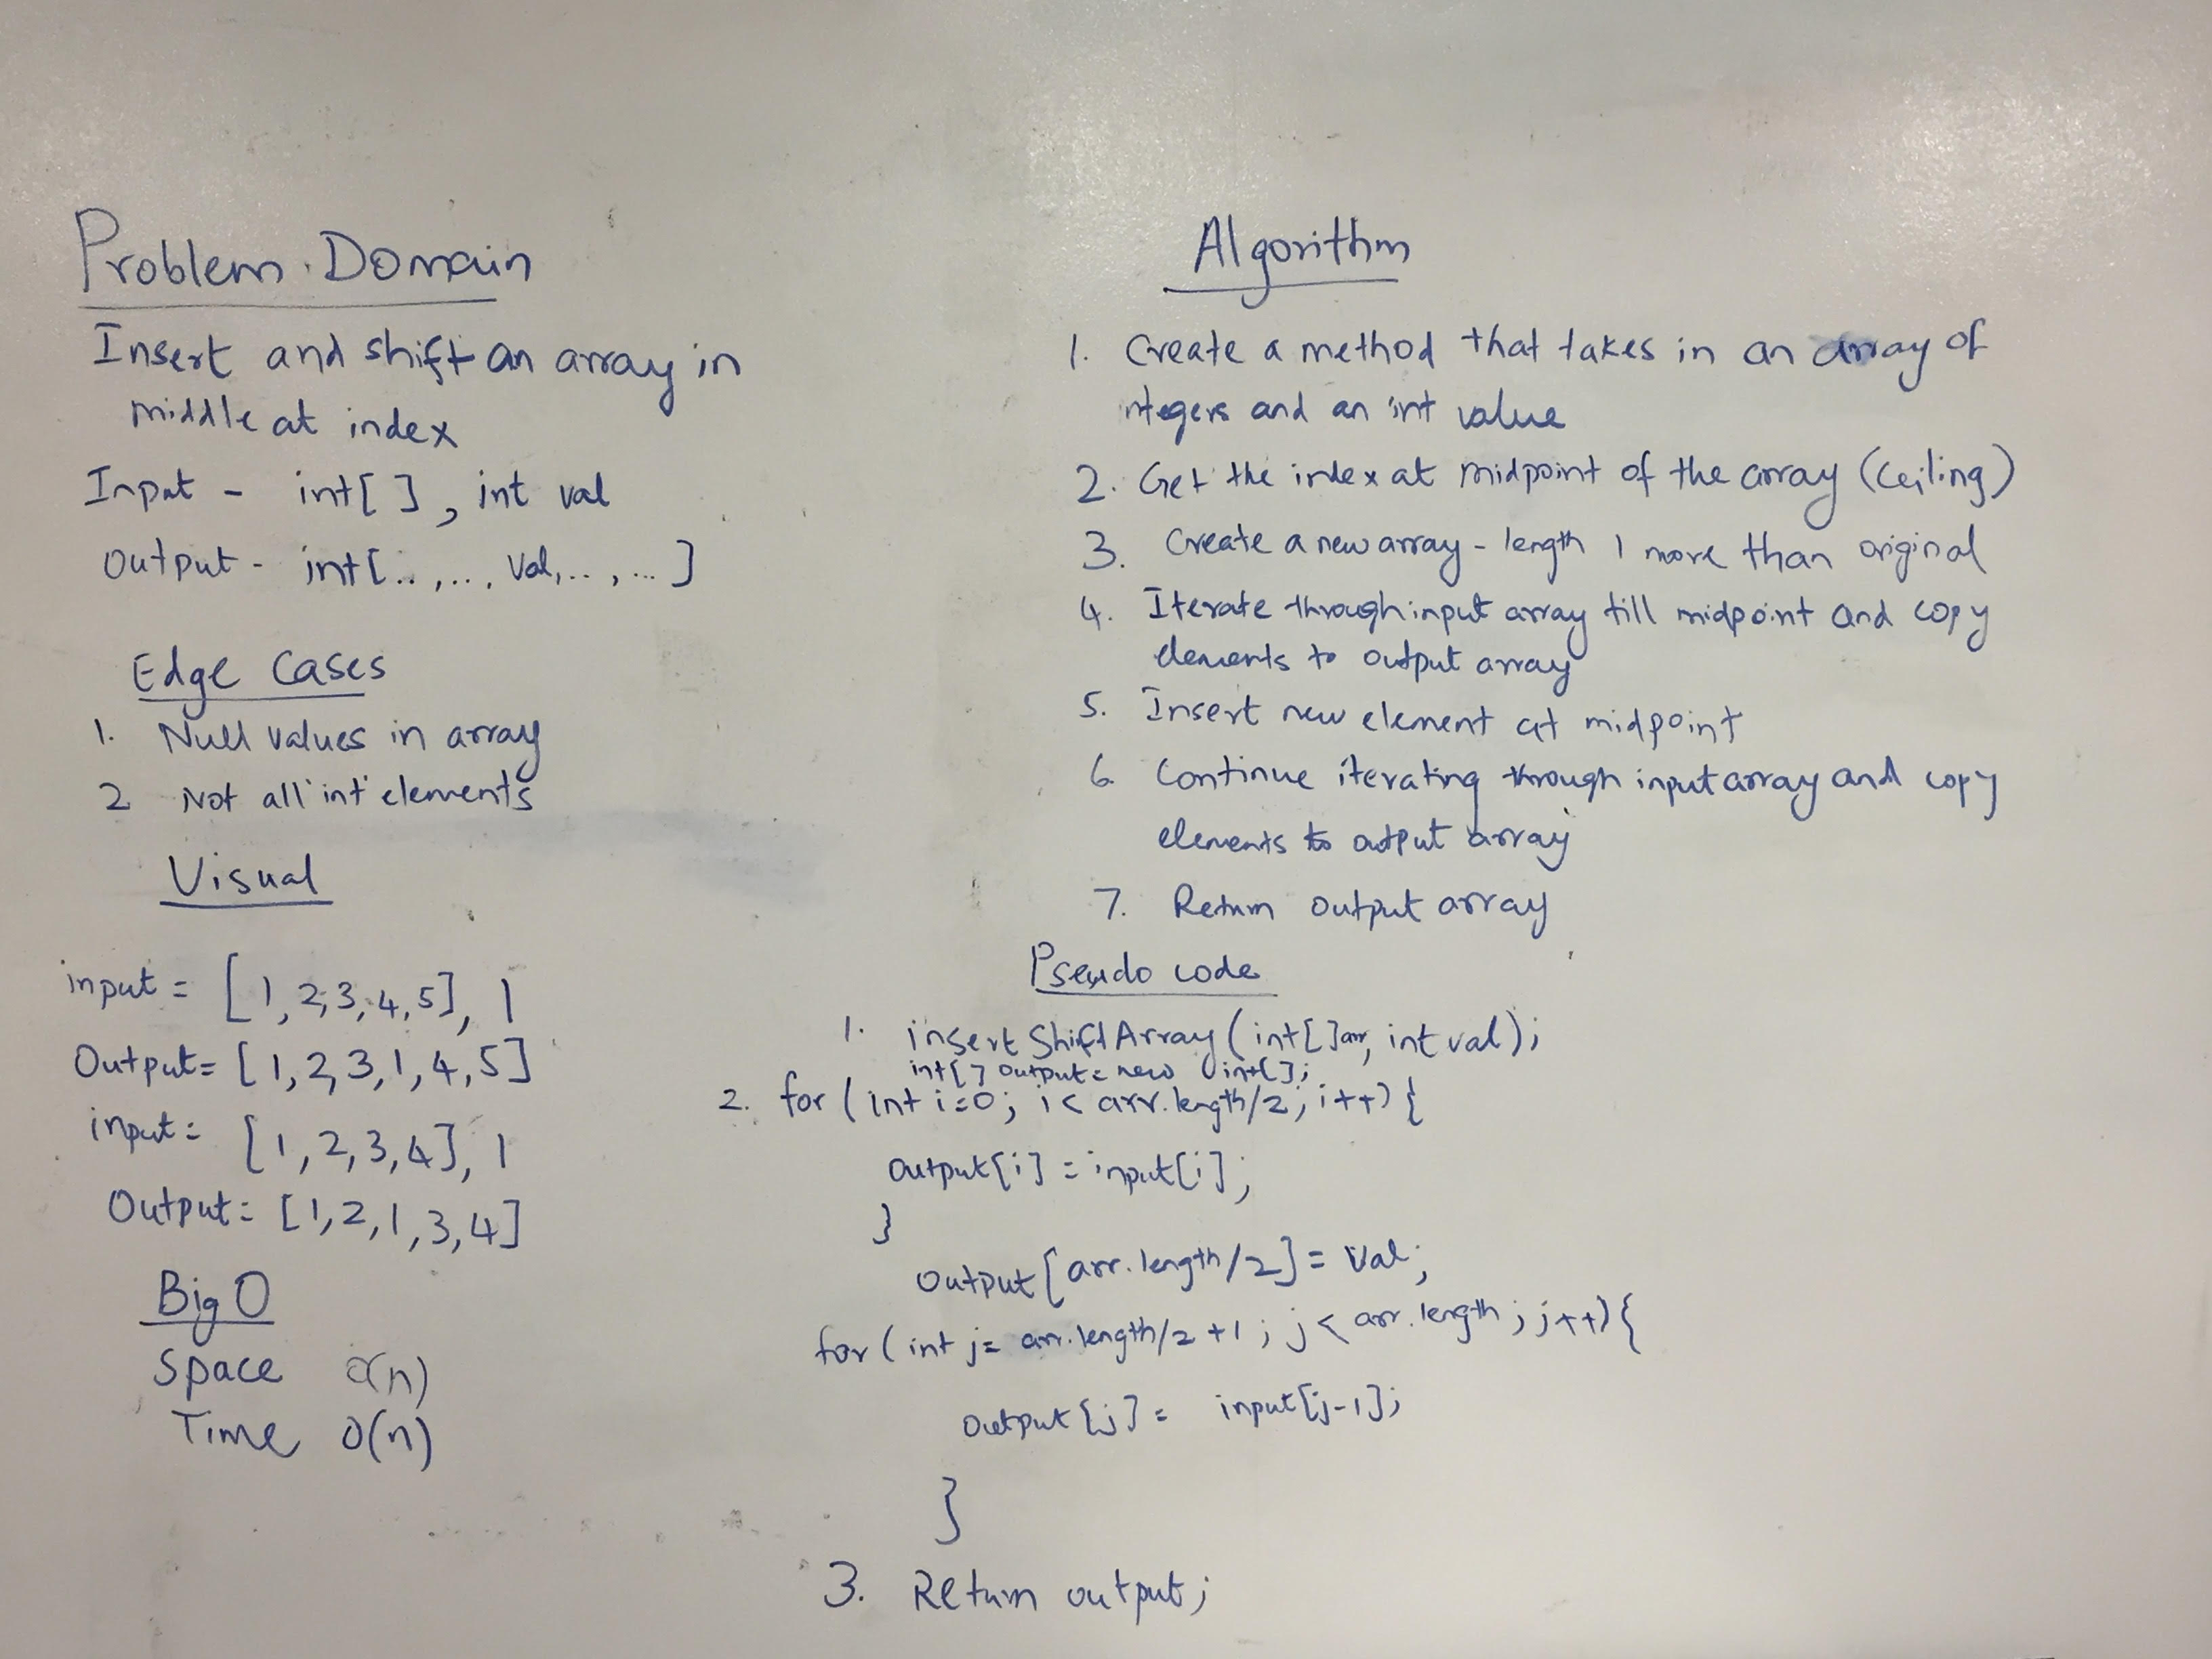 Problem Domain
Insert and shift an array in
middle at index
Input - int[ ], int val
Output - int[.. , ... , val, .. , ... ]
Edge Cases
1. Null values in array
2 Not all int elements
Visual
input = [1, 2, 3, 4, 5], 1
Output = [1, 2, 3, 1, 4, 5]
input = [1, 2, 3, 4], 1
Output = [1, 2, 1, 3, 4]
Big O
Space O(n)
Time O(n)
Algorithm
1. Create a method that takes in an array of
ntegers and an int value
2. Get the index at midpoint of the array (Ceiling)
3. Create a new array - length 1 more than original
4. Iterate through input array till midpoint and copy
elements to output array
5. Insert new element at midpoint
6 Continue iterating through input array and copy
elements to output array
7. Return output array
Pseudo code
1. insertShiftArray(int[]arr, int val);
int[] output = new int[];
2. for (int i=0; i< arr.length/2; i++) {
output[i] = input[i];
}
output[arr.length/2] = val;
for (int j= arr.length/2 +1; j < arr.length; j++) {
output[j] = input[j-1];
}
3. Return output;